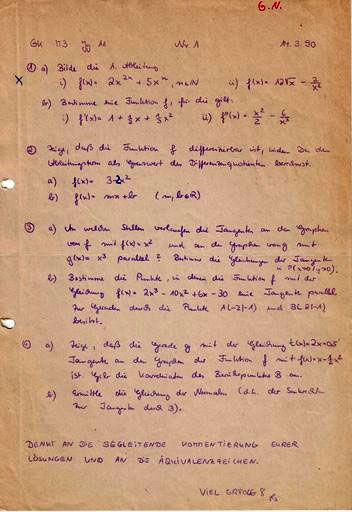 G.N.
GK M3 Jg 11 Nr. 1 14.3.90
① a) Bilde die 1. Ableitung
i) f(x) = 2x²ⁿ + 5xⁿ, n∈ℕ ii) f(x) = 12√x − 2/x²
b) Bestimme eine Funktion f, für die gilt:
i) f'(x) = 1 + x + x² ii) f'(x) = x²/2 − 6/x²
② Zeige, daß die Funktion f differenzierbar ist, indem Du den
Ableitungsterm als Grenzwert des Differenzenquotienten berechnest.
a) f(x) = 3-2x²
b) f(x) = mx+b (m,b∈ℝ)
③ a) An welchen Stellen verlaufen die Tangente an den Graphen
von f mit f(x)=x² und an den Graphen von g mit
g(x)=x³ parallel? Bestimme die Gleichungen der Tangente
in P(x≠0; y≠0).
b) Bestimme die Punkte, in denen die Funktion f mit der
Gleichung f(x) = 2x³ − 10x² + 6x − 30 eine Tangente parallel
zur Geraden durch die Punkte A(-2|-1) und B(2|-1)
besitzt.
a) Zeige, daß die Gerade g mit der Gleichung t(x)=2x+0.5
Tangente an den Graphen der Funktion f mit f(x)=x-x²
ist. Gib die Koordinaten des Berührpunktes B an.
b) Ermittle die Gleichung der Normalen (d.h. der Senkrechten
zur Tangente durch B).
DENKT AN DIE BEGLEITENDE KOMMENTIERUNG EURER
LÖSUNGEN UND AN DIE ÄQUIVALENZZEICHEN.
VIEL ERFOLG!